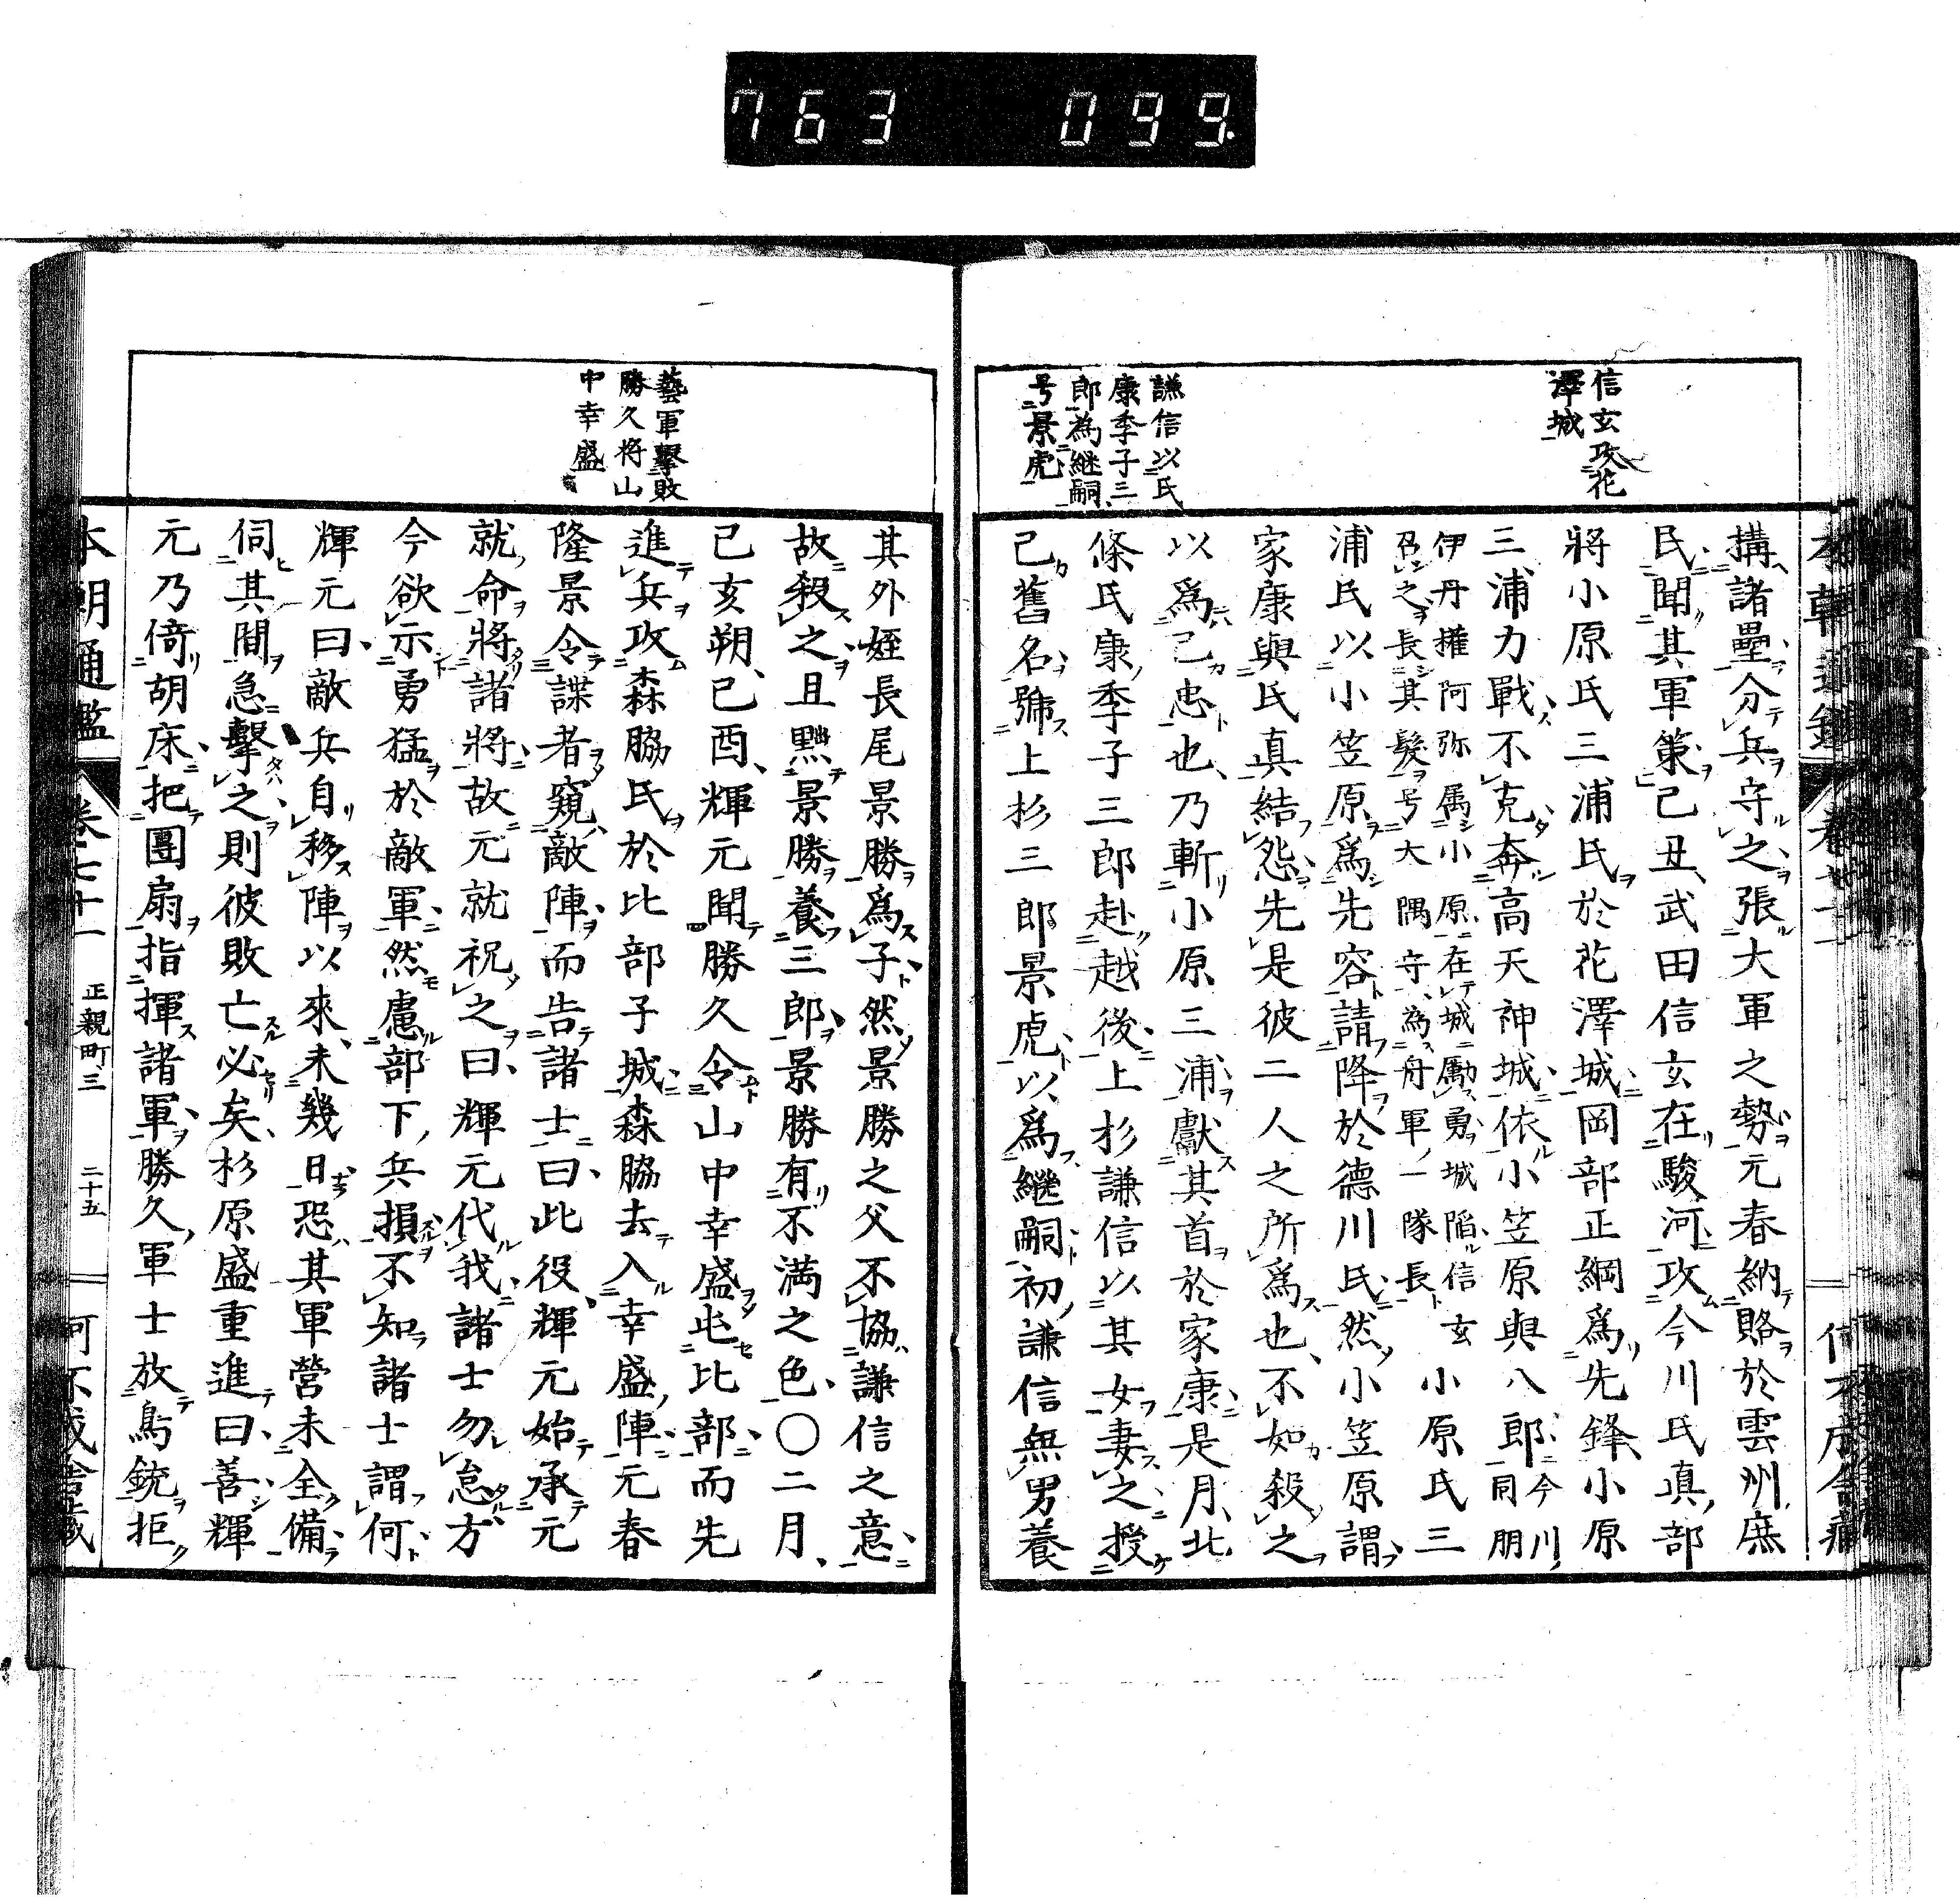 763 099.
信玄攻花
澤城
謙信以氏
康季子三
郎為継嗣
号景虎
搆諸壘分兵守之張大軍之勢元春納賂於雲州庶
民聞其軍策己丑武田信玄在駿河攻今川氏真部
將小原氏三浦氏於花澤城岡部正綱爲先鋒小原
三浦力戰不克奔高天神城依小笠原與八郎今川同朋
伊丹權阿弥属小原在城勵勇城陥信玄
召之長其髮号大隅守為舟軍一隊長
小原氏三
浦氏以小笠原爲先容請降於德川氏然小笠原謂
家康與氏真結怨先是彼二人之所爲也不如殺之
以爲己忠也乃斬小原三浦獻其首於家康是月北
條氏康季子三郎赴越後上杉謙信以其女妻之授
己舊名號上杉三郎景虎以爲繼嗣初謙信無男養
藝軍擊敗
勝久将山
中幸盛
其外姪長尾景勝爲子然景勝之父不協謙信之意
故殺之且黜景勝養三郎景勝有不満之色〇二月
己亥朔己酉輝元聞勝久令山中幸盛屯比部而先
進兵攻森脇氏於比部子城森脇去入幸盛陣元春
隆景令諜者窺敵陣而告諸士曰此役輝元始承元
就命將諸將故元就祝之曰輝元代我諸士勿怠方
今欲示勇猛於敵軍然慮部下兵損不知諸士謂何
輝元曰敵兵自移陣以來未幾日恐其軍營未全備
伺其間急擊之則彼敗亡必矣杉原盛重進曰善輝
元乃倚胡床把團扇指揮諸軍勝久軍士放鳥銃拒
本朝通鑑 卷七十一 正親町三 二十五